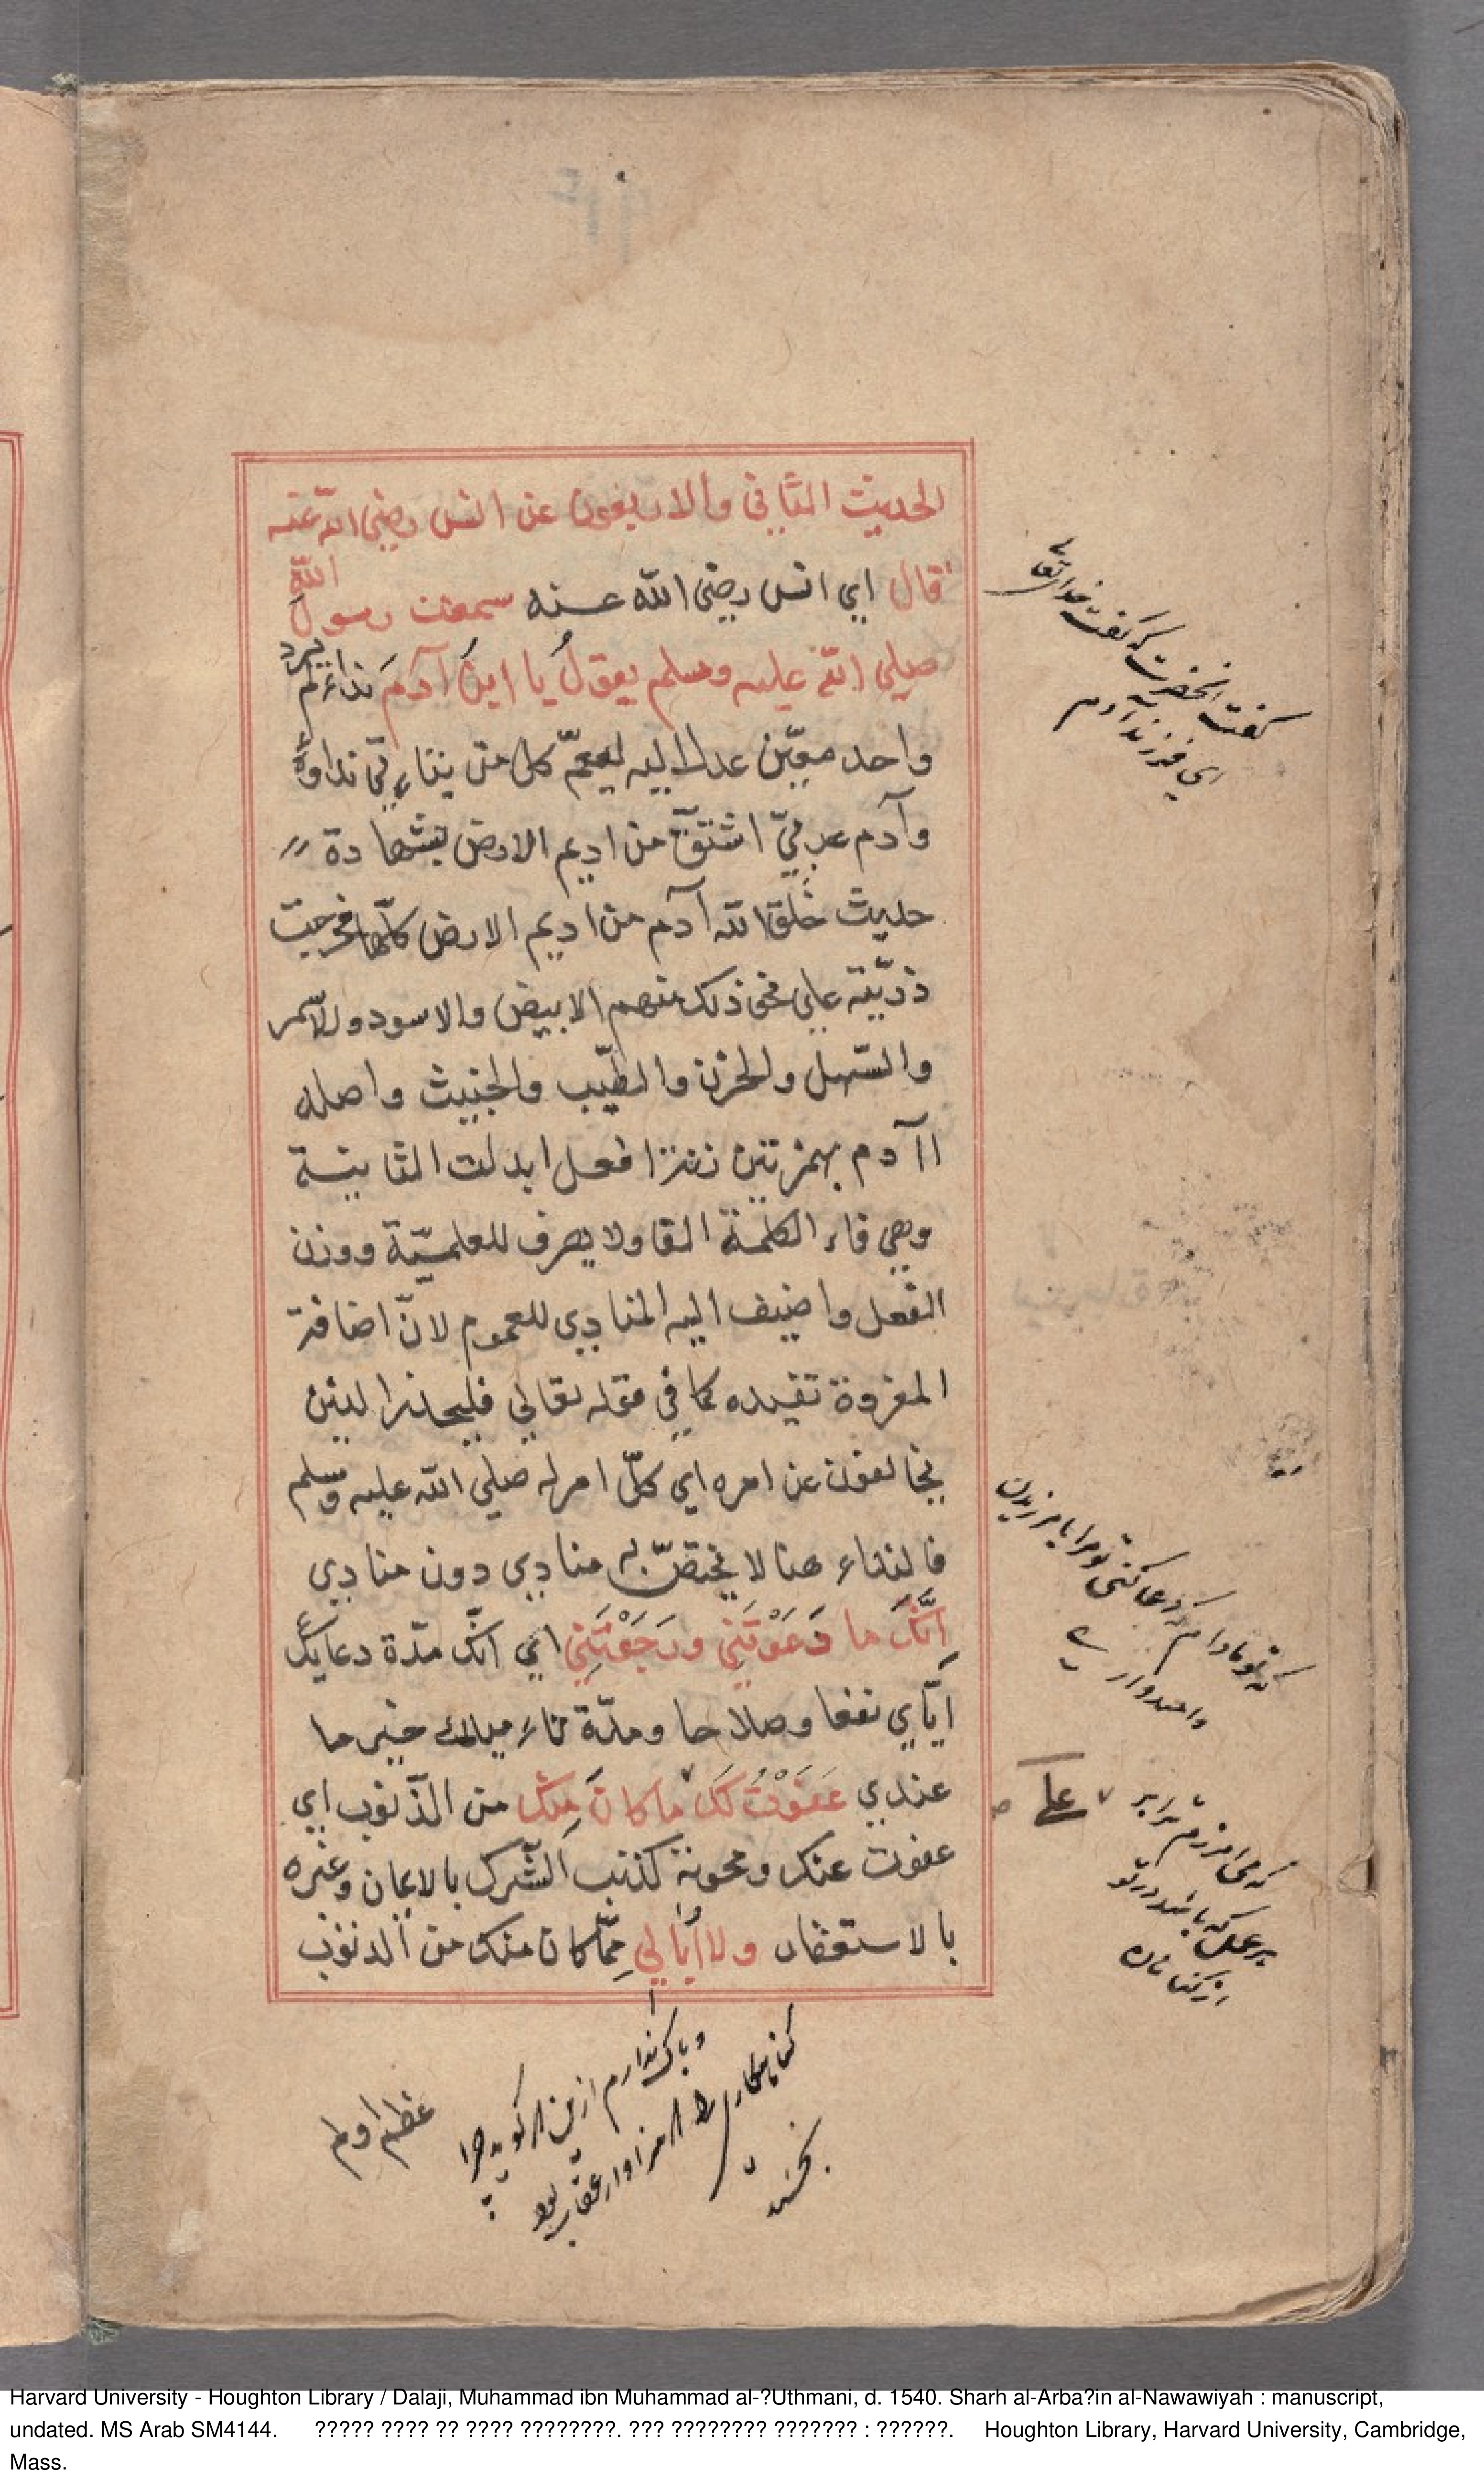 الحديث الثاني والاربعون عن انس رضي الله عنه
قال اي انس رضي الله عنه سمعت رسول الله
صلى الله عليه وسلم يقول يا ابنَ آدمَ نداء لم يرد
واحد معيّن عدل اليه ليعمّ كل من يتاءتي نداوٴه
وآدم عربيّ اشتقّ من اديم الارض بشهادة
حديث خلق الله آدم من اديم الارض كلّها فخرجت
ذرّيته علي نحو ذلك منهم الابيض والاسود والاسمر
والسّهل والحزن والطيّب والخبيث واصله
اآدم بهمزتين وزن افعل ابدلت الثانية
وهي فاء الكلمة الفا ولا يصرف للعلميّة ووزن
الفعل واضيف اليه المنادي للعموم لانّ اضافة
المفرد تفيده كما في قوله تعالي فليحذر الذين
يخالفون عن امره اي كلّ امر له صلي الله عليه وسلم
فالنداء هنا لا يختصّ به منادي دون منادي
اِنَّكَ ما دَعَوْتَنِي ورَجَوْتَنِي اي انّك مدّة دعايك
ايّاي نفعا وصلاحا ومدّة تاءميلك خير ما
عندي غَفَرْتُ لَكَ ما كانَ مِنْكَ من الذّنوب اي
عفوت عنك ومحوته كذنب الشّرك بالايمان وغيره
بالاستغفار ولا اُبالي مِمّا كان منك من الذنوب
گفت آنحضرت كه گفت خدا تعالى
اي فرزند آدم
كه تو مادام كه دعا كنى تو مرا
واميدوارى
على
كه مى آمرزم ترا بر
هر عملى كه باشد در تو
از گناهان
وباك ندارم ازين
عظم اولم
Harvard University - Houghton Library / Dalaji, Muhammad ibn Muhammad al-?Uthmani, d. 1540. Sharh al-Arba?in al-Nawawiyah : manuscript,
undated. MS Arab SM4144. ????? ???? ?? ???? ????????. ??? ???????? ??????? : ??????. Houghton Library, Harvard University, Cambridge,
Mass.